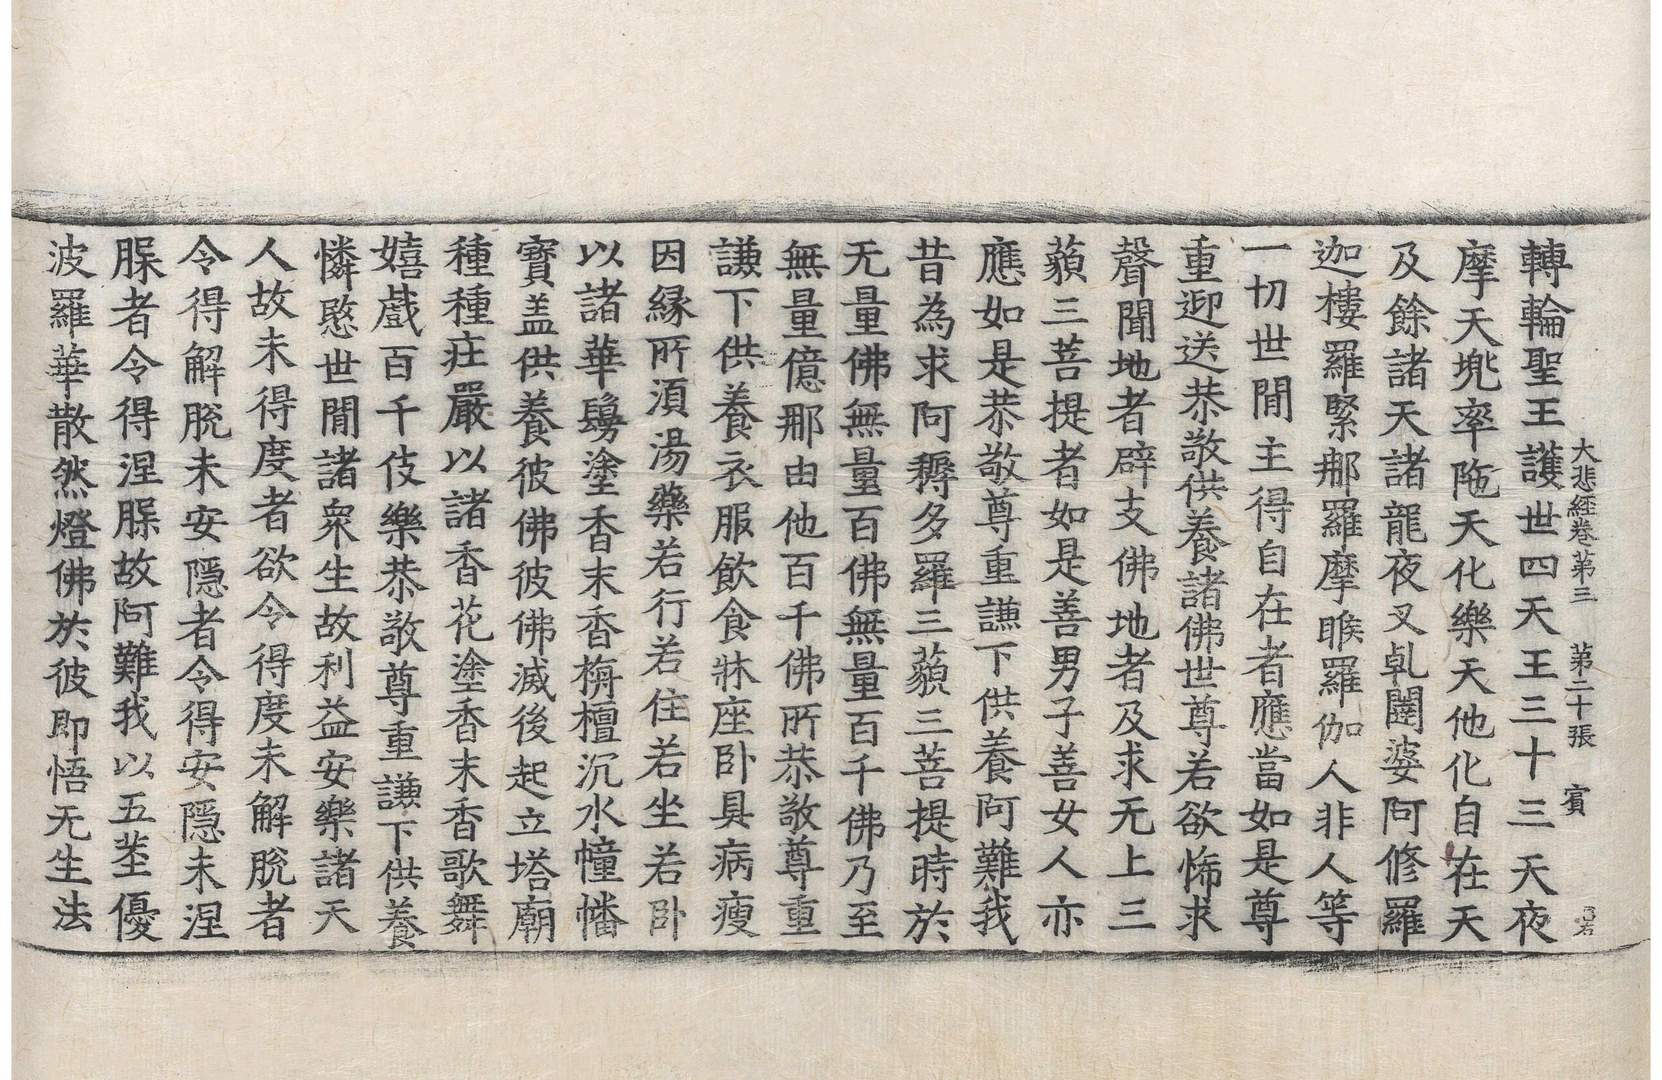 大悲經卷第三 第二十張 賓
轉輪聖王護世四天王三十三天夜
摩天兠率陁天化樂天他化自在天
及餘諸天諸龍夜叉乹闥婆阿修羅
迦樓羅緊那羅摩睺羅伽人非人等
一切世閒主得自在者應當如是尊
重迎送恭敬供養諸佛世尊若欲悕求
聲聞地者辟支佛地者及求无上三
藐三菩提者如是善男子善女人亦
應如是恭敬尊重謙下供養阿難我
昔為求阿耨多羅三藐三菩提時於
无量佛無量百佛無量百千佛乃至
無量億那由他百千佛所恭敬尊重
謙下供養衣服飲食牀座卧具病瘦
因緣所湏湯藥若行若住若坐若卧
以諸華鬘塗香末香栴檀沉水幢幡
寶盖供養彼佛彼佛滅後起立塔廟
種種庄嚴以諸香花塗香末香歌舞
嬉戲百千伎樂恭敬尊重謙下供養
憐愍世閒諸衆生故利益安樂諸天
人故未得度者欲令得度未解脫者
令得解脫未安隱者令得安隱未涅
槃者令得涅槃故阿難我以五莖優
波羅華散然燈佛於彼即悟无生法